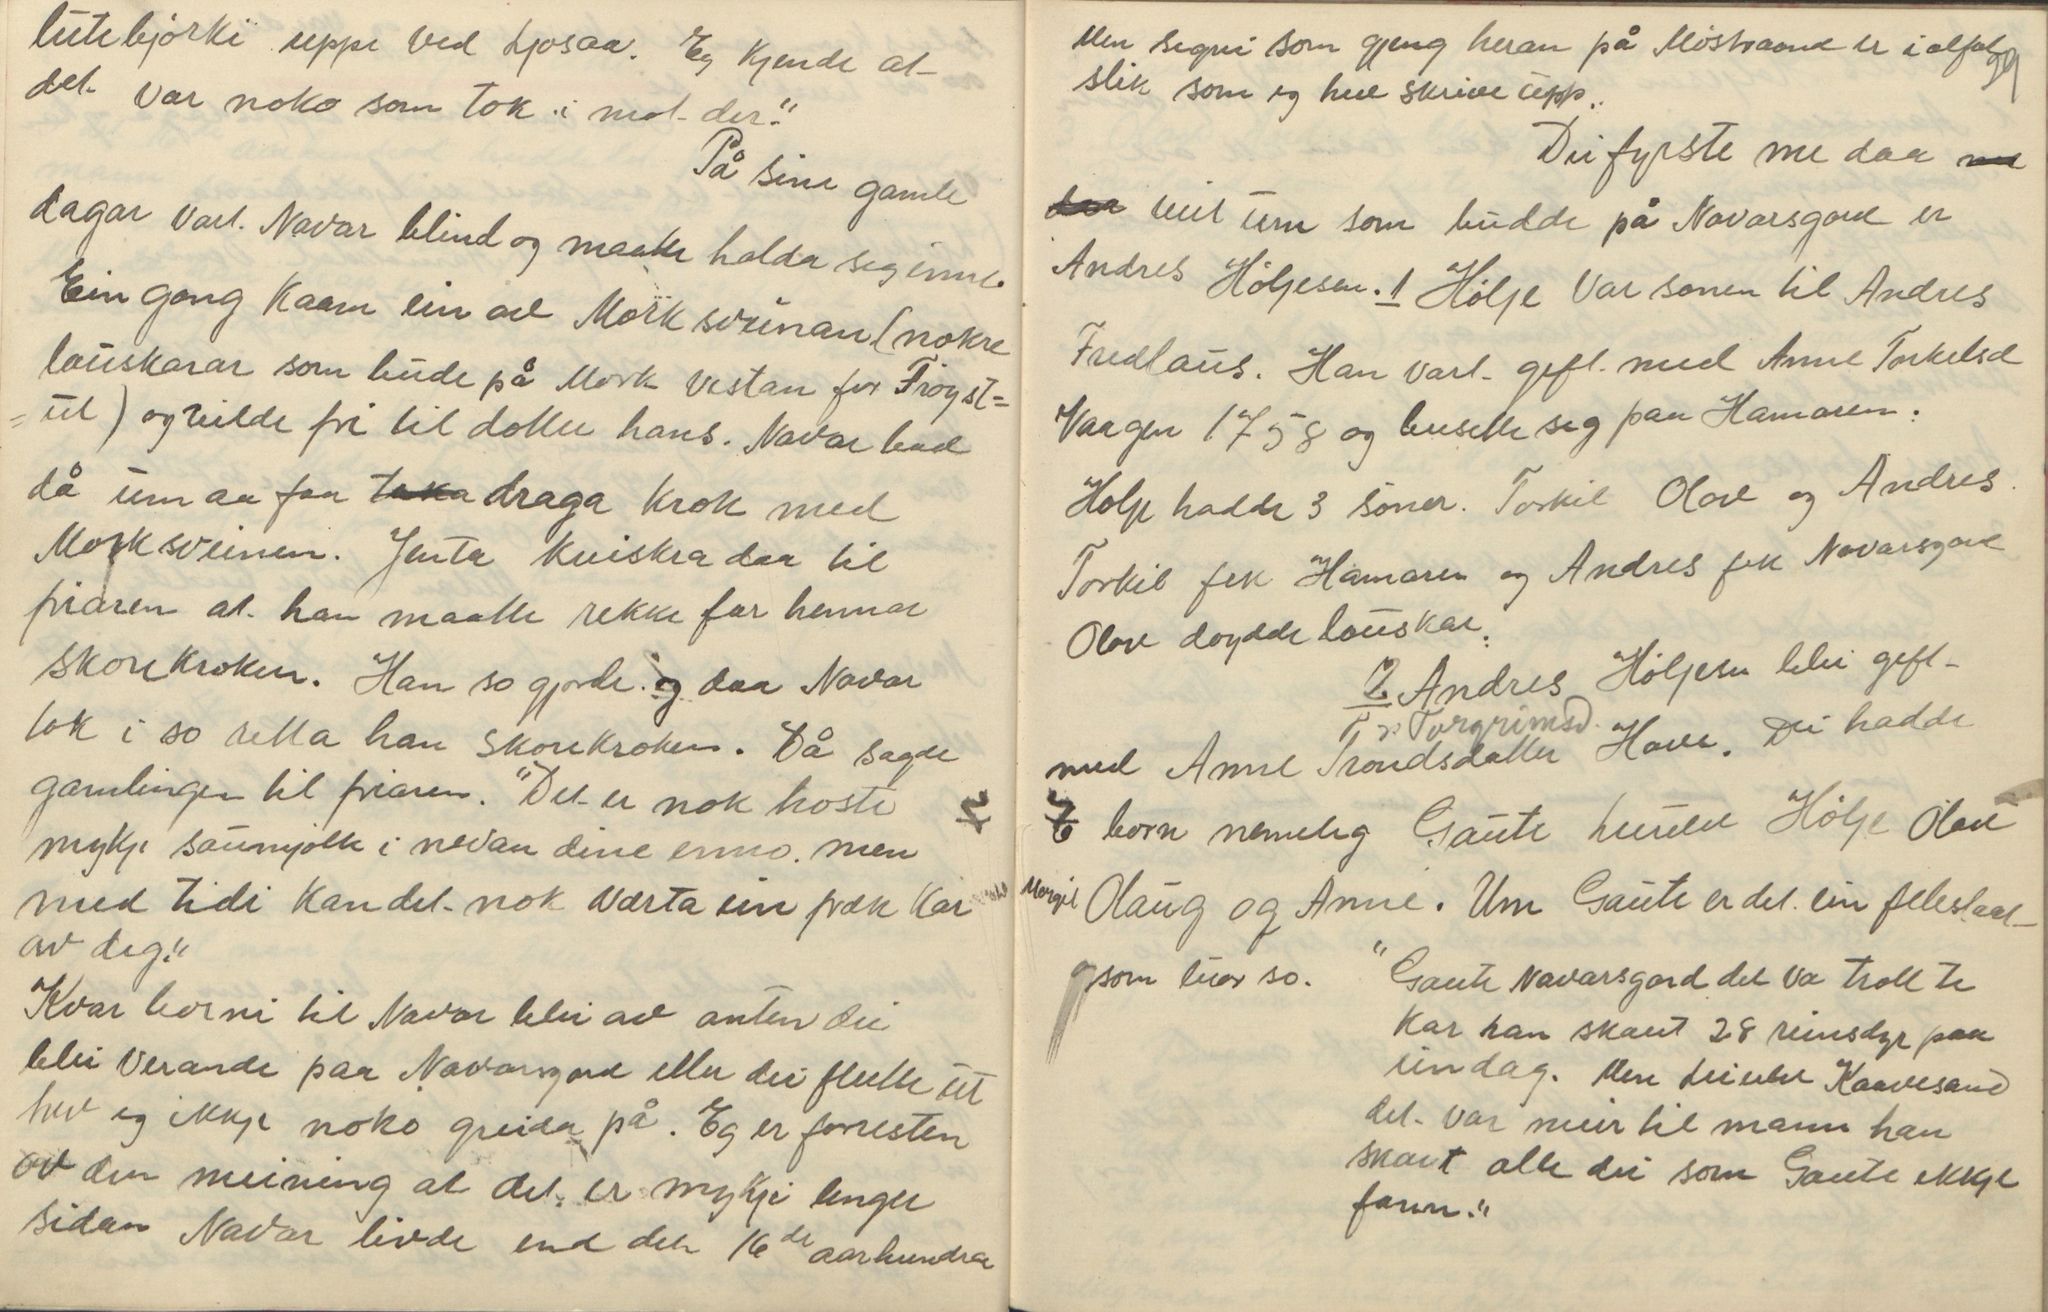 litebjörki uppe ved Ljosaa. Eg kjende at
det var noko som tok i mot der."
På sine gamle
dagar vart Navar blind og maatte halda seg inne.
Ein gong kaam ein av Mörksveinan (nokre
lauskarar som bude på Mork vestan for Fröyst=
=ul) og vilde fri til dotter hans. Navar baud
då um aa faa taka draga krok med
Morksveinen. Jenta kviskra daa til
friaren at han maatte rekke far hennar
skorekroken. Han so gjorde og daa Navar
tok i so retta han skorekroken. Då sagde
gamlingen til friaren. "Det er nok troste
mykje saumjölk i nevan dine enno. men
med tidi kan det nok værta ein fræk kar
av deg."
Kvar borni til Navar blei av anten dei
blei verande paa Navarsgard eller dei flutte ut
hev eg ikkje noko greida på. Eg er forresten
av den meining at det er mykje lenger
sidan Navar livde end den 16de aarhundra
Men segni som gjeng heran på Möstraand er i alfal
slik som eg hev skrive upp.
Dei fyrste me daa me
daa veit um som budde på Navarsgard er
Andres Höljesen. 1 Hölje var sonen til Andres
Fredlaus. Han vart gift med Anne Torkelsd
Vaagen 1758 og busette seg paa Hamaren.
Holje hadde 3 söner. Torkil Olav og Andres.
Torkil fek Hamaren og Andres fek Navarsgard
Olav döydde lauskar.
2 Andres Höljesen blei gift
Torgrimsd.
med Anne Trondsdotter Hove. Dei hadde
7 born nemeleg Gaute Hölje Olav
Margit Olaug og Anne. Um Gaute er det ein
som lær so. "Gaute Navarsgard det va troll te
kar han skaut 28 reinsdyr paa
eindag. Men Kaavesand
det var meir til mann han
skaut alle dei som Gaute ikkje
fann."